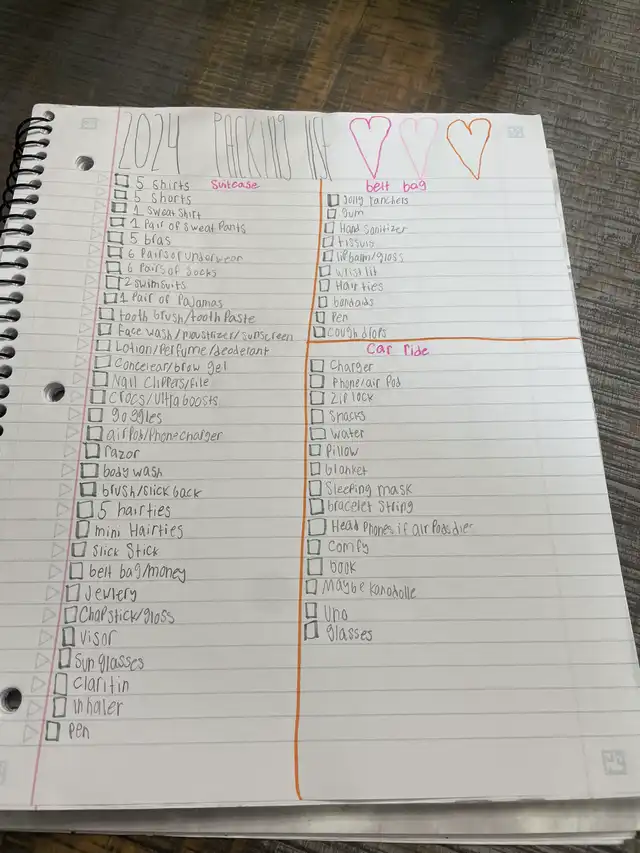 2024 PACKING list
Suitcase
5 Shirts
5 Shorts
1 Sweat Shirt
1 Pair of Sweat Pants
5 bras
6 Pairs of underwear
6 Pairs of Socks
2 swimsuits
1 Pair of Pajamas
tooth brush/tooth Paste
Face wash/moustrizer/sunscreen
Lotion/Perfume/deoderant
Concelear/brow gel
Nail Clippers/File
Crocs/Ultra boosts
goggles
airPod/Phone charger
razor
body wash
brush/slick back
5 hairties
mini Hairties
Slick Stick
belt bag/money
Jewlery
Chapstick/gloss
Visor
Sunglasses
Claritin
inhaler
Pen
belt bag
Jolly ranchers
Gum
Hand Sanitizer
tissuis
lip balm/gloss
wrist lit
Hair ties
bandaids
Pen
cough drops
Car ride
Charger
Phone/air Pod
Ziplock
Snacks
water
Pillow
blanket
Sleeping mask
bracelet String
Head Phones if air Pods die
Comfy
book
Maybe
Uno
glasses